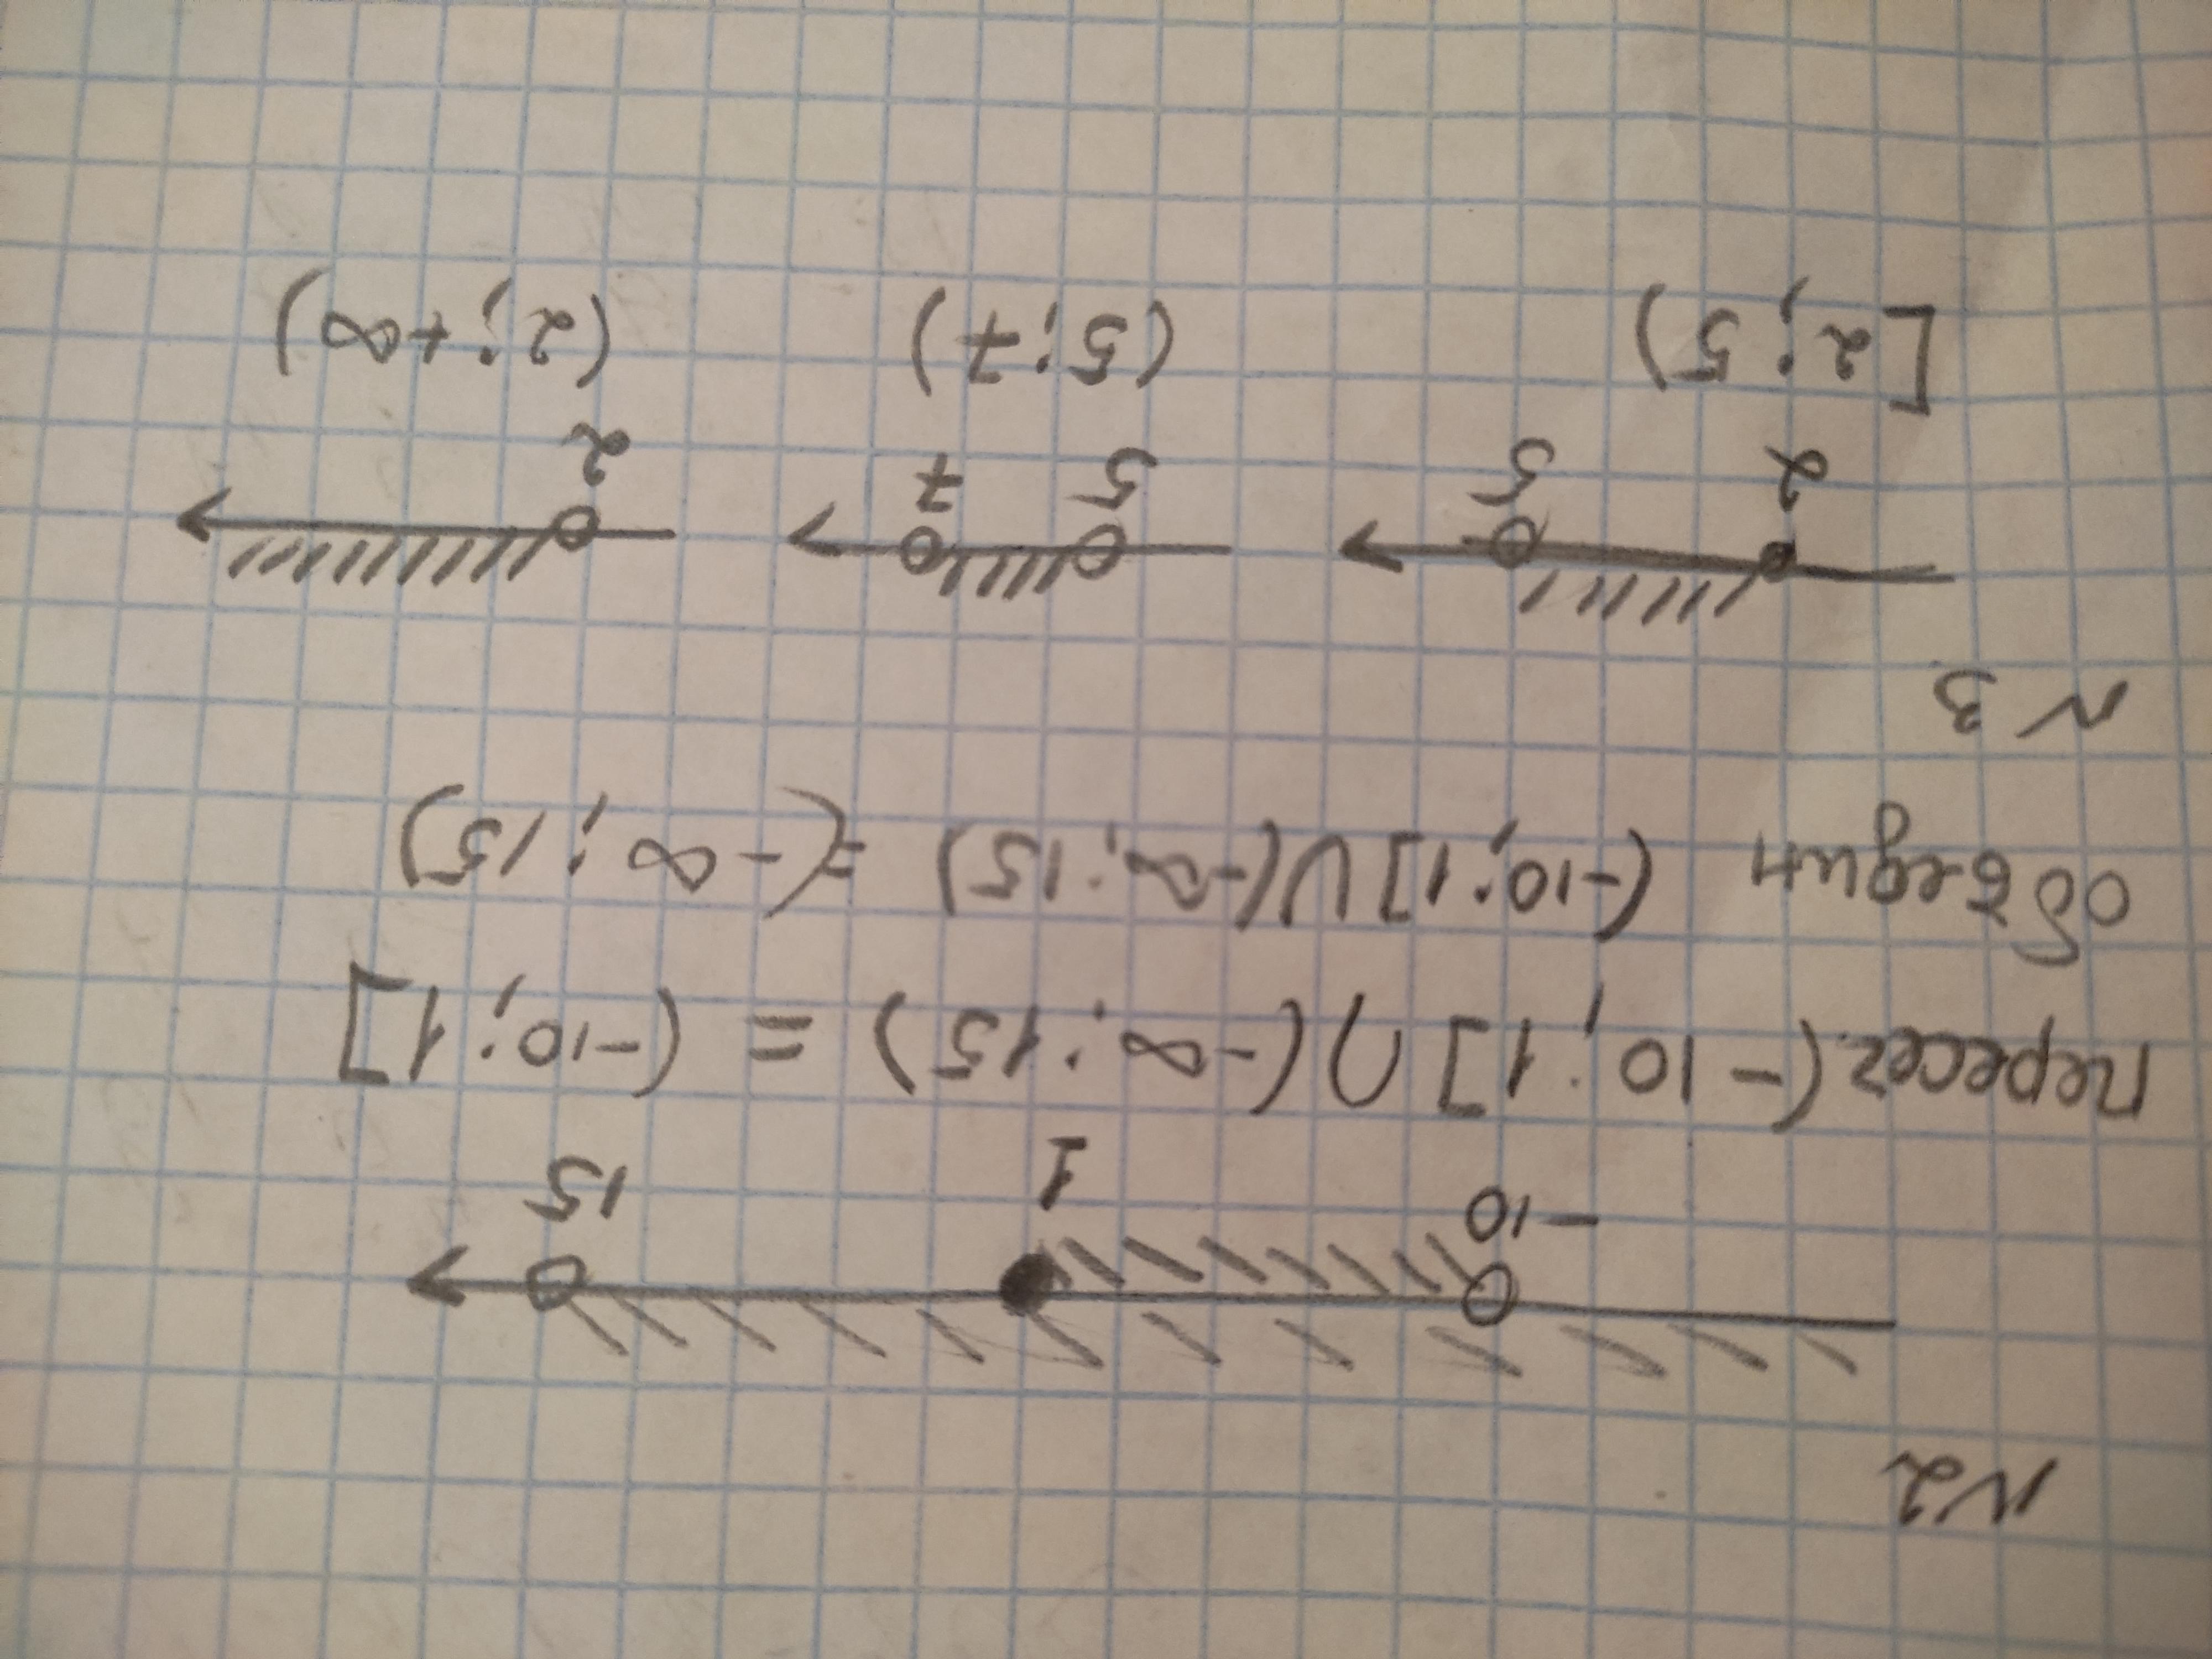 N2
-10 1 15
Пересеч. (-10; 1] ∩ (-∞; 15) = (-10; 1]
Объедин (-10; 1] ∪ (-∞; 15) = (-∞; 15)
N3
2 5 5 7 2
[2; 5) (5; 7) (2; +∞)